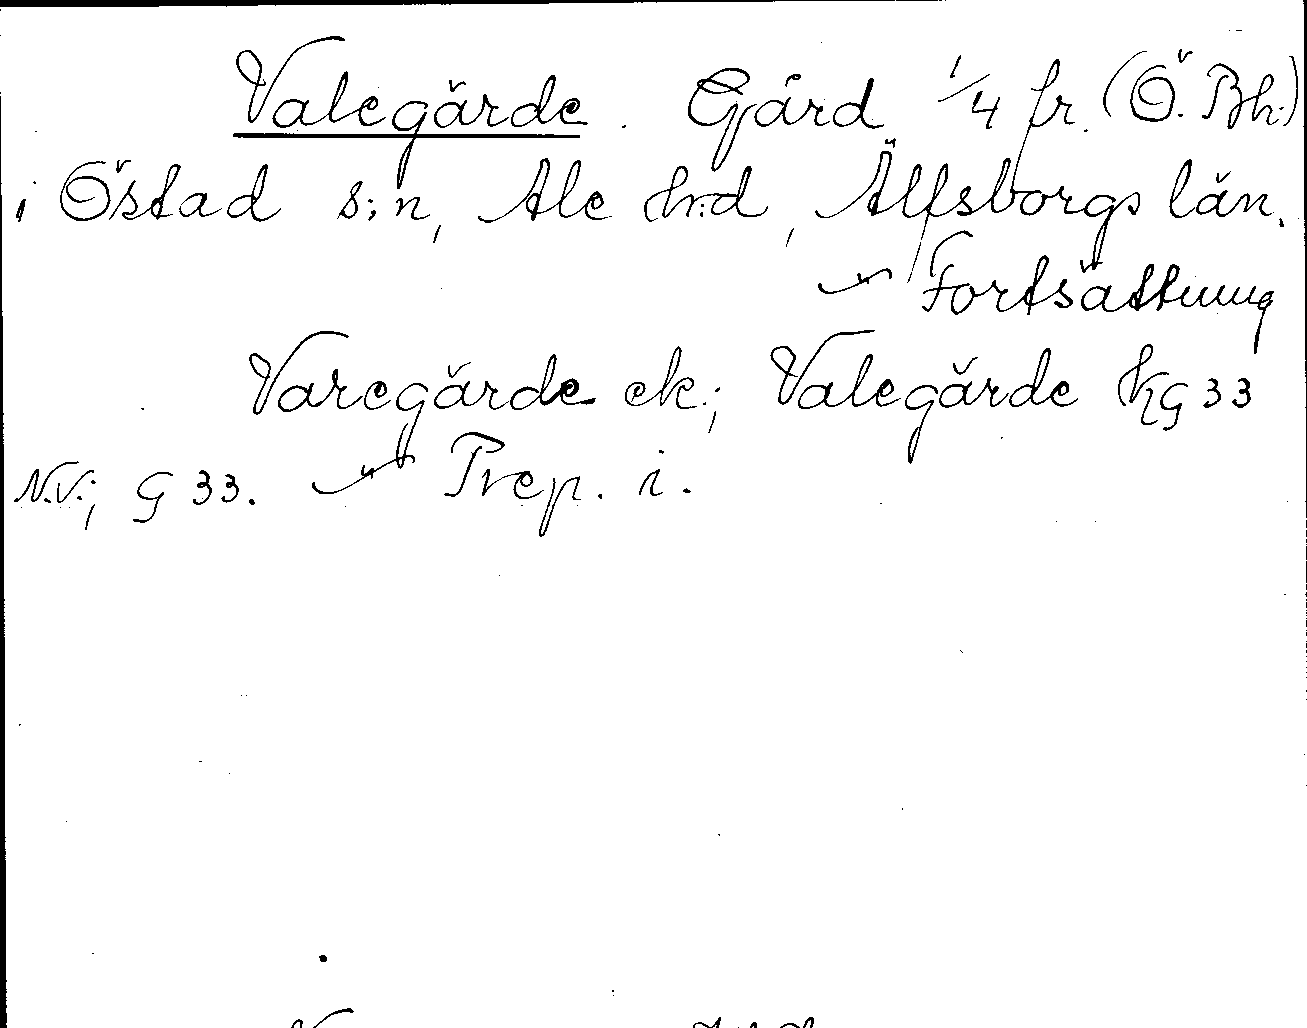 Valegärde. Gård 1/4 fr. (Ö. Bh.)
i Östad s:n, Ale h:d, Älfsborgs län.
Fortsättning
Varegärde ek.; Valegärde KG 33
N.V.; G 33. Prep. i.